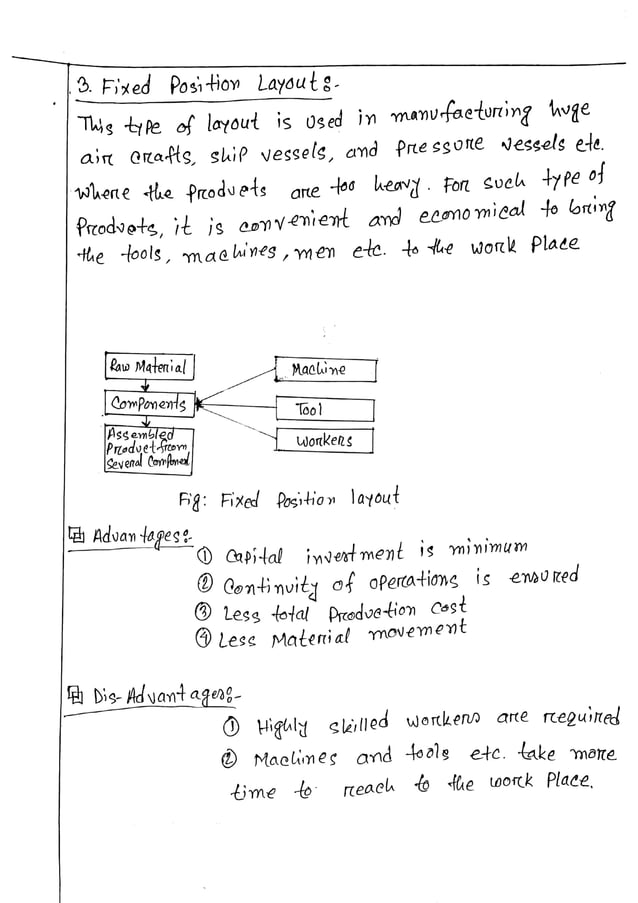 3. Fixed Position Layout:-
This type of layout is used in manufacturing huge
air crafts, ship vessels, and pressure vessels etc.
where the products are too heavy. For such type of
Products, it is convenient and economical to bring
the tools, machines, men etc. to the work Place
Raw Material
Components
Assembled
Product from
Several Component
Machine
Tool
Workers
Fig: Fixed Position layout
Advantages:-
① Capital investment is minimum
② Continuity of operations is ensured
③ Less total Production cost
④ Less Material movement
Dis-Advantages:-
① Highly skilled workers are required
② Machines and tools etc. take more
time to reach to the work Place.